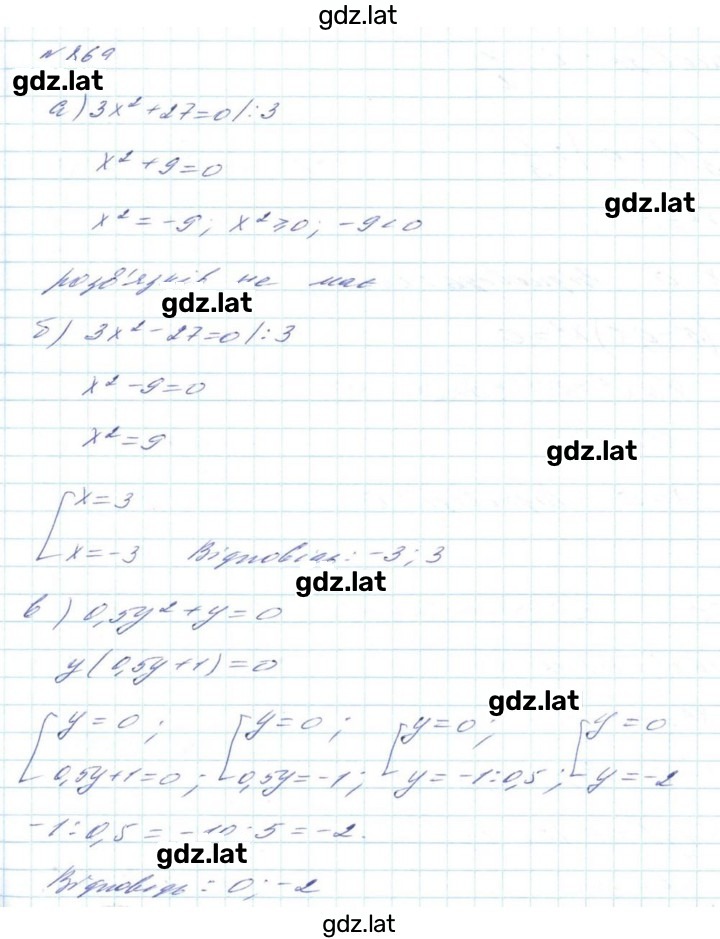 gdz.lat
№ 269
gdz.lat
а) 3x² + 27 = 0 / : 3
x² + 9 = 0
x² = -9; x² ≥ 0; -9 < 0
gdz.lat
розв'язків не має
gdz.lat
б) 3x² - 27 = 0 / : 3
x² - 9 = 0
x² = 9
gdz.lat
[ x = 3
[ x = -3 Відповідь: -3; 3
gdz.lat
в) 0,5y² + y = 0
y(0,5y + 1) = 0
gdz.lat
[ y = 0; [ y = 0; [ y = 0; [ y = 0
[ 0,5y + 1 = 0; [ 0,5y = -1; [ y = -1 : 0,5; [ y = -2
-1 : 0,5 = -10 : 5 = -2.
gdz.lat
Відповідь: 0; -2
gdz.lat